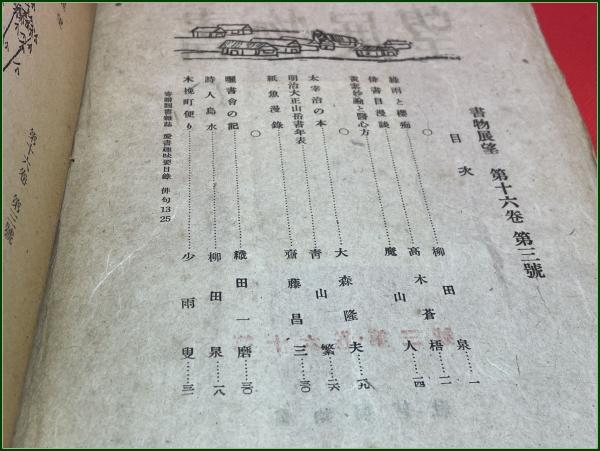 書物展望 第十六卷 第三號
目次
綠雨と樗痴……柳田泉……一
○
俳書目漫談……高木蒼梧……一二
黃素妙論と醫心方……魔山人……一四
○
太宰治の本……大森隆夫……一九
明治大正山岳書年表……青山繁……二六
紙魚漫錄……齋藤昌三……三〇
○
曬書會の記……織田一磨……三〇
詩人烏水……柳田泉……一八
木挽町便り……少雨叟……三一
寄贈圖書雜誌 愛書趣味要目錄 俳句 13 25
第十六卷 第三號